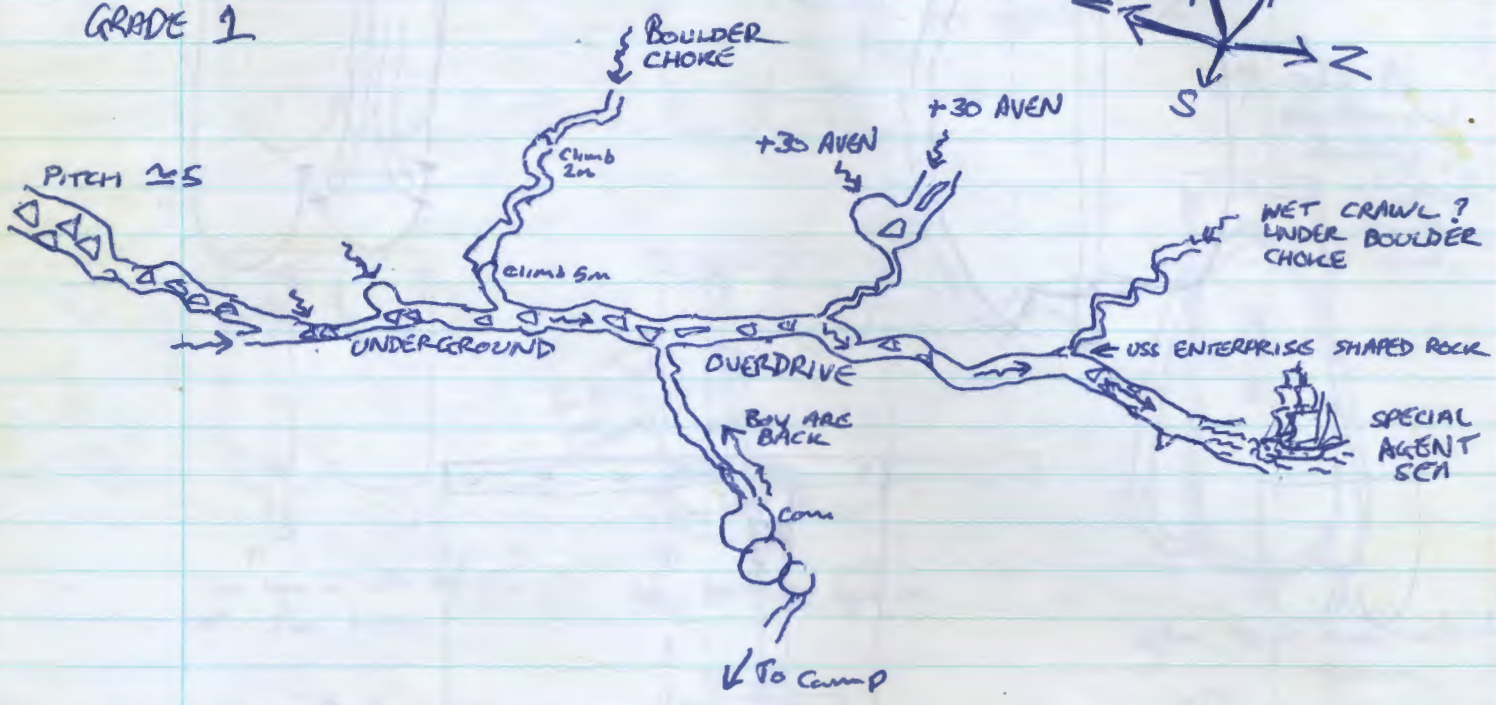 GRADE 1
BOULDER
CHOKE
N
S
+30 AVEN
+30 AVEN
PITCH ≃5
Climb
2m
WET CRAWL?
UNDER BOULDER
CHOKE
Climb 5m
UNDERGROUND
OVERDRIVE
← USS ENTERPRISE SHAPED ROCK
BOY ARE
BACK
SPECIAL
AGENT
SEA
To Camp